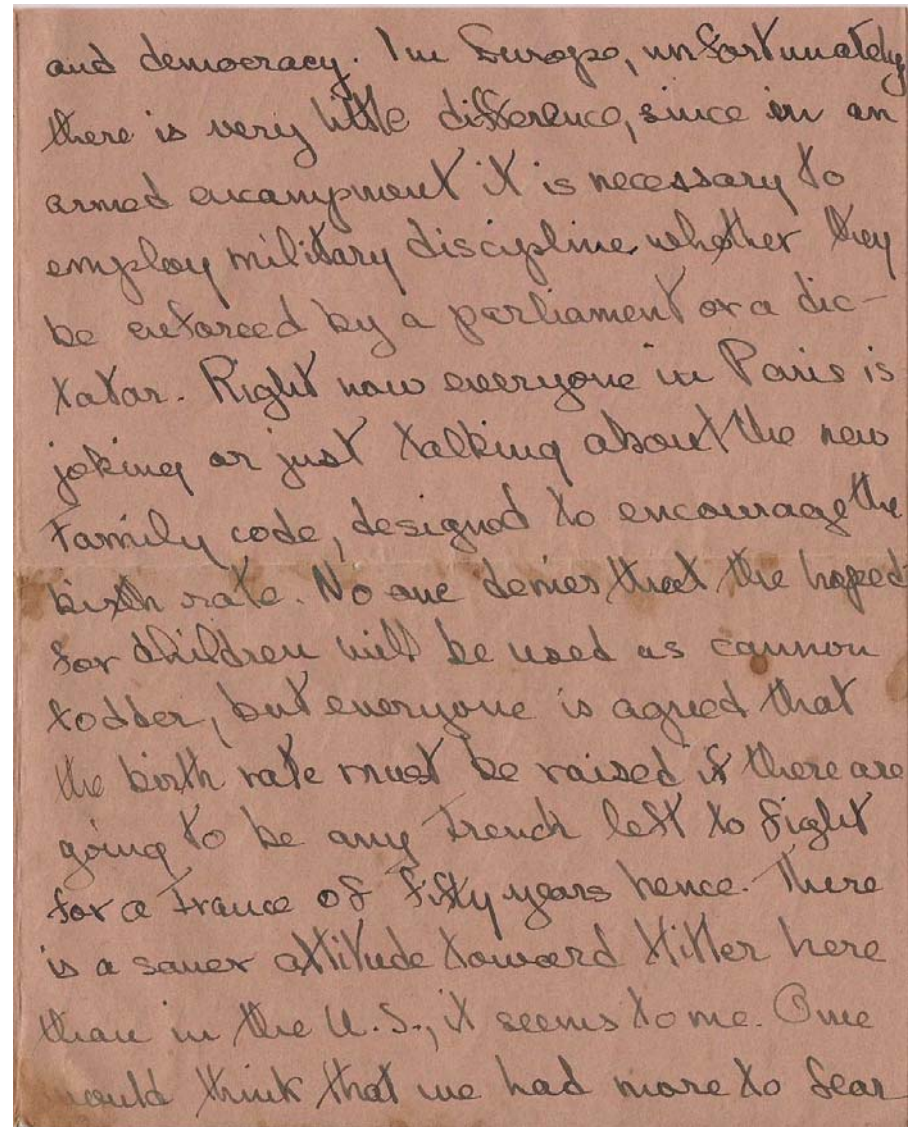 and democracy. In Europe, unfortunately
there is very little difference, since in an
armed encampment it is necessary to
employ military discipline whether they
be enforced by a parliament or a dic-
tator. Right now everyone in Paris is
joking or just talking about the new
Family code, designed to encourage the
birth rate. No one denies that the hoped
for children will be used as cannon
fodder, but everyone is agreed that
the birth rate must be raised if there are
going to be any French left to fight
for a France of fifty years hence. There
is a saner attitude toward Hitler here
than in the U.S., it seems to me. One
would think that we had more to fear